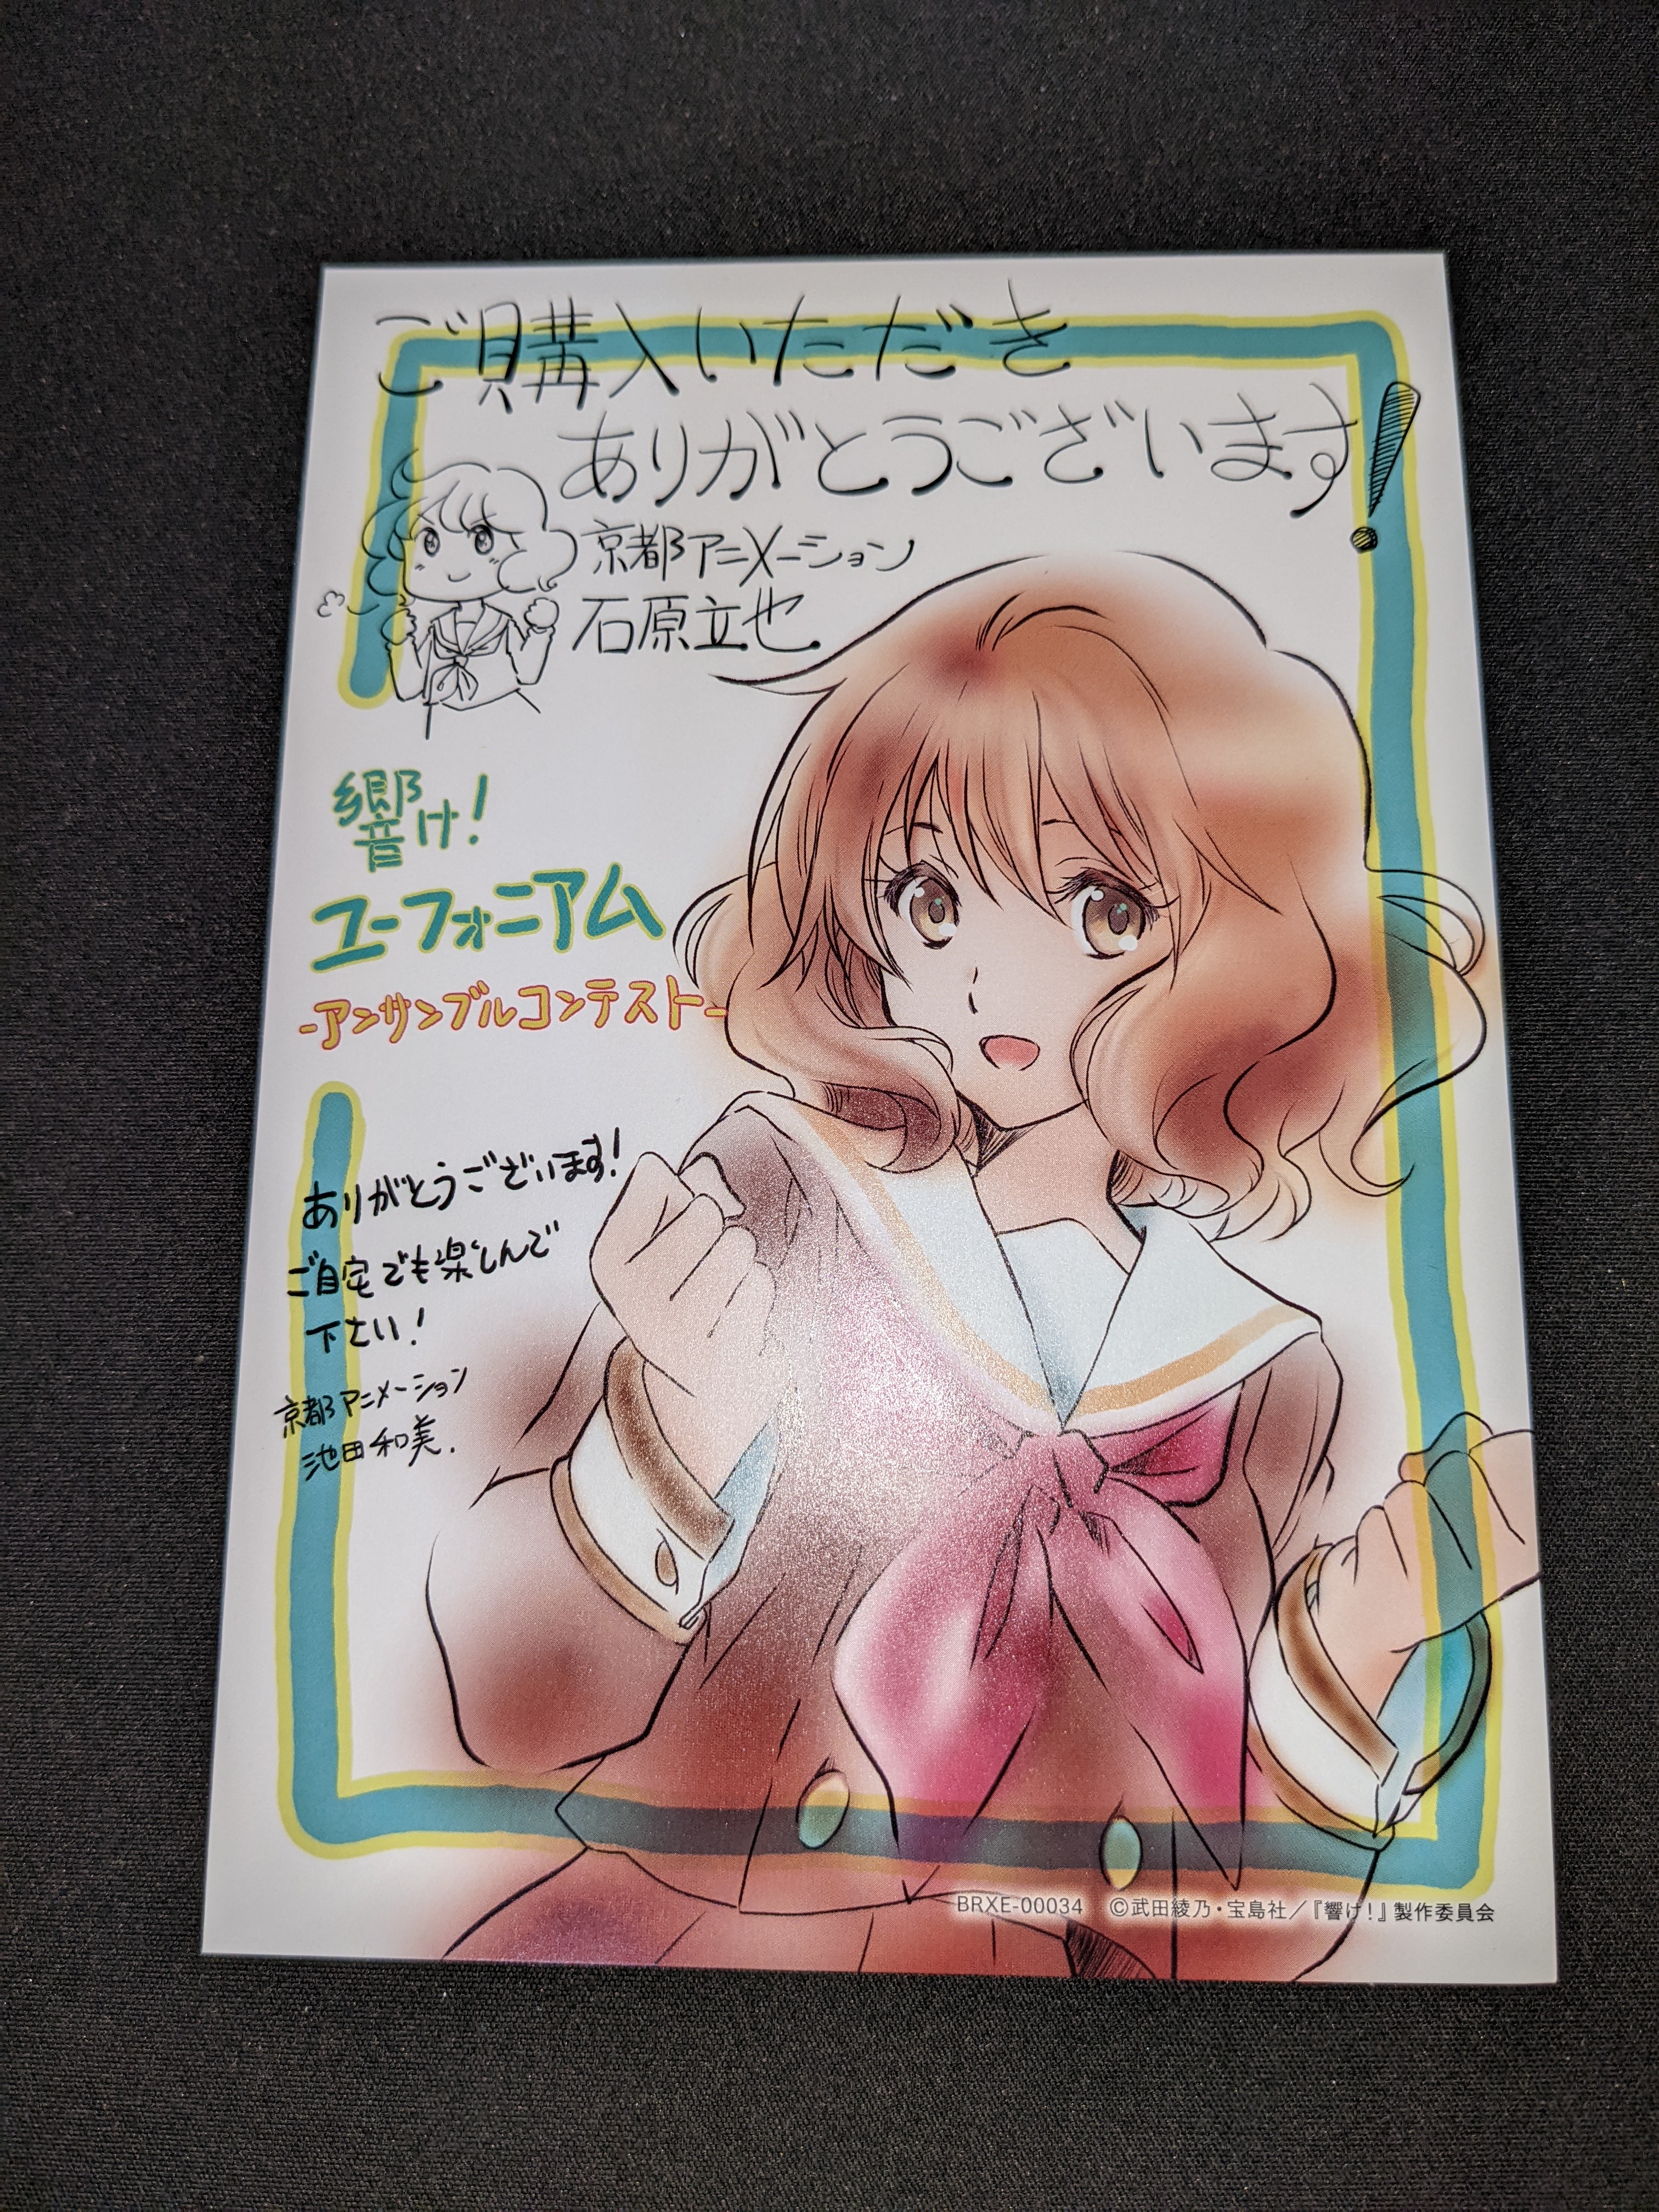 ご購入いただき
ありがとうございます!
京都アニメーション
石原立也
響け!
ユーフォニアム
-アンサンブルコンテスト-
ありがとうございます!
ご自宅でも楽しんで
下さい!
京都アニメーション
池田和美.
BRXE-00034 ©武田綾乃・宝島社／『響け!』製作委員会